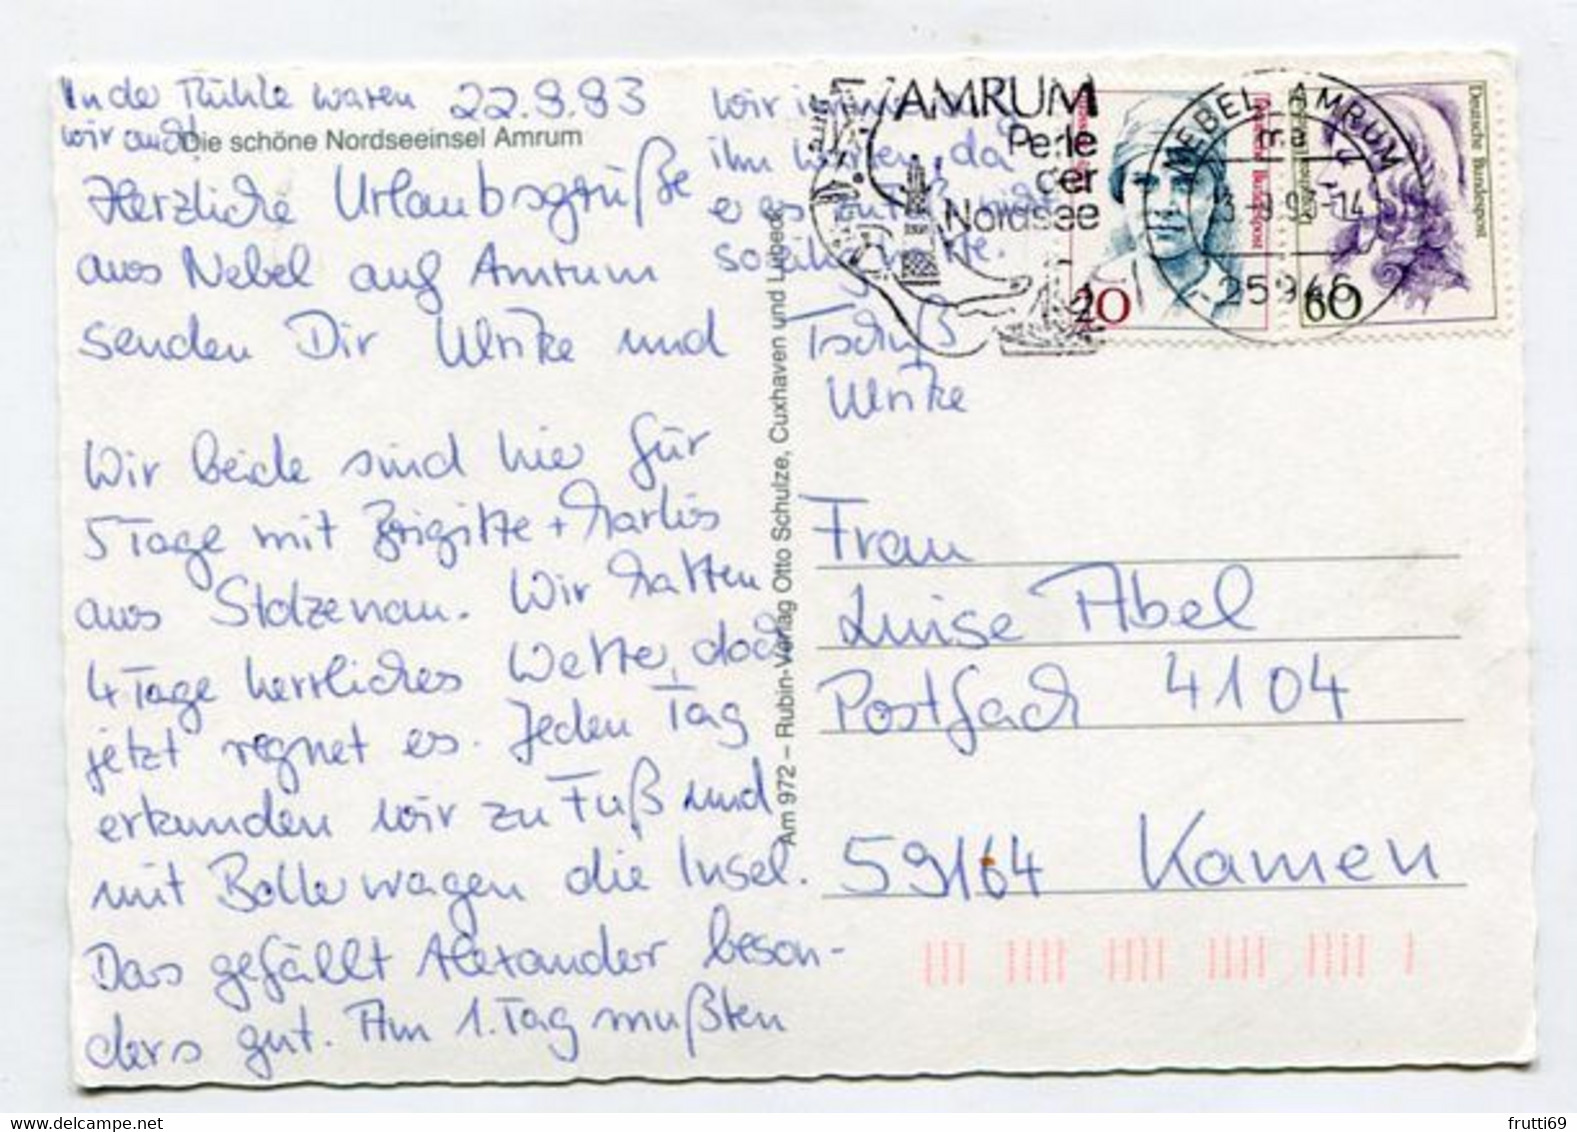 In der Mühle waren
wir auch!
22.9.93
Die schöne Nordseeinsel Amrum
Herzliche Urlaubsgrüße
aus Nebel auf Amrum
senden Dir Ulrike und
Wir beide sind hier für
5 Tage mit Brigitte + Marlies
aus Stolzenau. Wir hatten
4 Tage herrliches Wetter, doch
jetzt regnet es. Jeden Tag
erkunden wir zu Fuß und
mit Bollerwagen die Insel.
Das gefällt Alexander beson-
ders gut. Am 1. Tag mußten
wir immer
ihn da
er es zu Fuß nicht
so
Tschüß
Ulrike
Am 972 – Rubin-Verlag Otto Schulze, Cuxhaven und Lübeck
AMRUM
Perle
der
Nordsee
NEBEL, AMRUM
ma
25946
Deutsche Bundespost
20
60
Frau
Luise Abel
Postfach 4104
59164 Kamen
frutti69